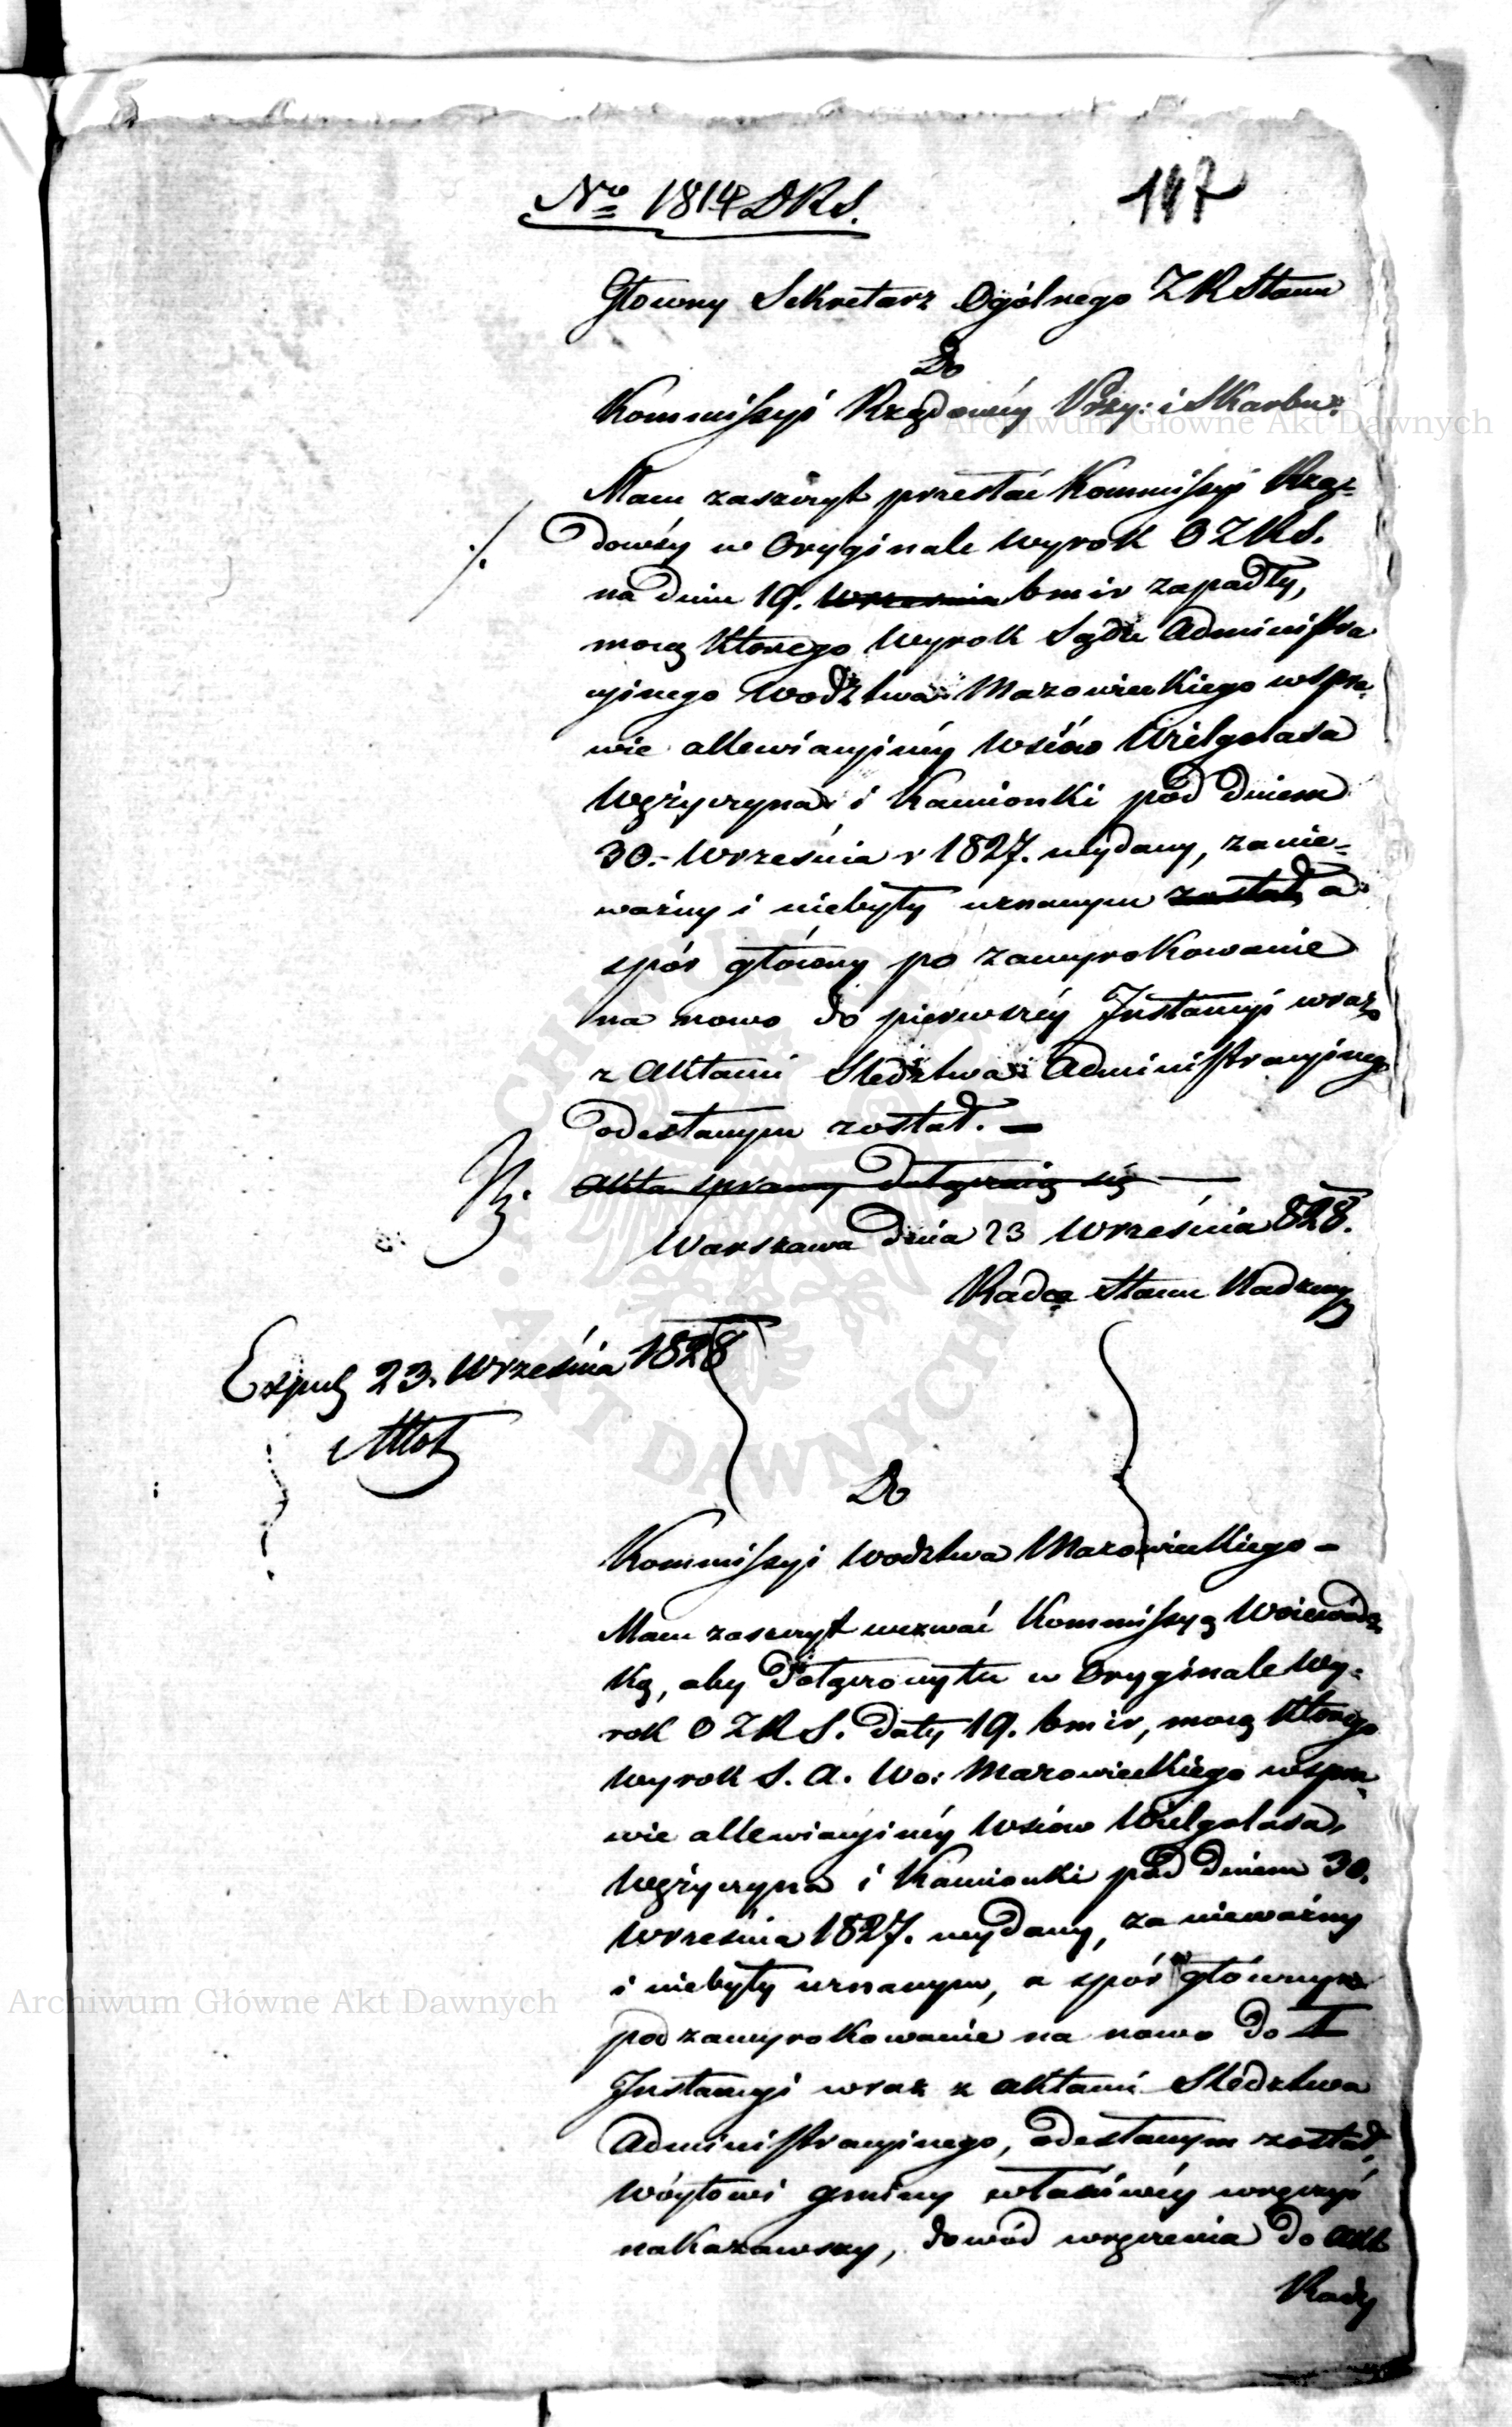 Nro 1814 DRS.
147
Główny Sekretarz Ogólnego Z R Stanu
Do
Kommissyi Rządowéy Przy: i Skarbu.
Archiwum Główne Akt Dawnych
Mam zaszczyt przesłać Kommissyi Rzą-
dowéy w Oryginale Wyrok O Z R S.
na dniu 19. Września bm i r zapadły,
mocą którego Wyrok Sądu Administra
cyjnego Wodztwa Mazowieckiego w spra-
wie allewiacyjnéy Wsiów Wielgolasa
Wężyczyna i Kamionki pod dniem
30. Września r 1827. wydany, za nie-
ważny i niebyły uznanym został, a
spór główny po zawyrokowanie
na nowo do pierwszéy Instancyi wraz
z Aktami Sledztwa Administracyjnego
odesłanym został. —
Akta sprawy dołączaią się —
Warszawa dnia 23 Września 828.
Radca Stanu Nadzwy
Exped 23. Września 1828
Do
Kommissyi Wodztwa Mazowieckiego -
Mam zaszczyt wezwać Kommissyą Woiewódz-
ką, aby dołączony tu w Oryginale Wy-
rok O Z R S. daty 19. bm i r, mocą którego
Wyrok S. A. Wo: Mazowieckiego w spra-
wie allewiacyjnéy Wsiów Wielgolasa,
Wężyczyna i Kamionki pod dniem 30.
Września 1827. wydany, za nieważny
i niebyły uznanym, a spór główny
pod zawyrokowanie na nowo do I
Instancyi wraz z aktami Sledztwa
Administracyjnego, odesłanym został,
Wóytowi gminy właściwéy wręczyć
nakazawszy, dowód wręczenia do Akt
Rady
Archiwum Główne Akt Dawnych
ARCHIWUM GŁÓWNE AKT DAWNYCH